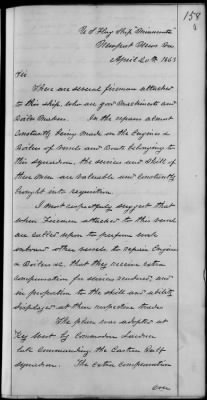 158
U. S. Flag Ship "Minnesota"
Newport News Va
April 20th 1863
Sir
There are several firemen attached
to this ship, who are good Machinists and
Boiler Makers. In the repairs almost
constantly being made on the Engines &
Boilers of Vessels and Boats belonging to
this squadron, the services and skill of
these men are valuable and constantly
brought into requisition.
I most respectfully suggest that
when Firemen attached to this vessel
are called upon to perform work
on board other vessels to repair Engines
& Boilers &c, that they receive extra
compensation for services rendered, and
in proportion to the skill and ability
displayed at their respective trades.
The plan was adopted at
Key West by Commodore
late Commanding the Eastern Gulf
Squadron. The extra compensation
over